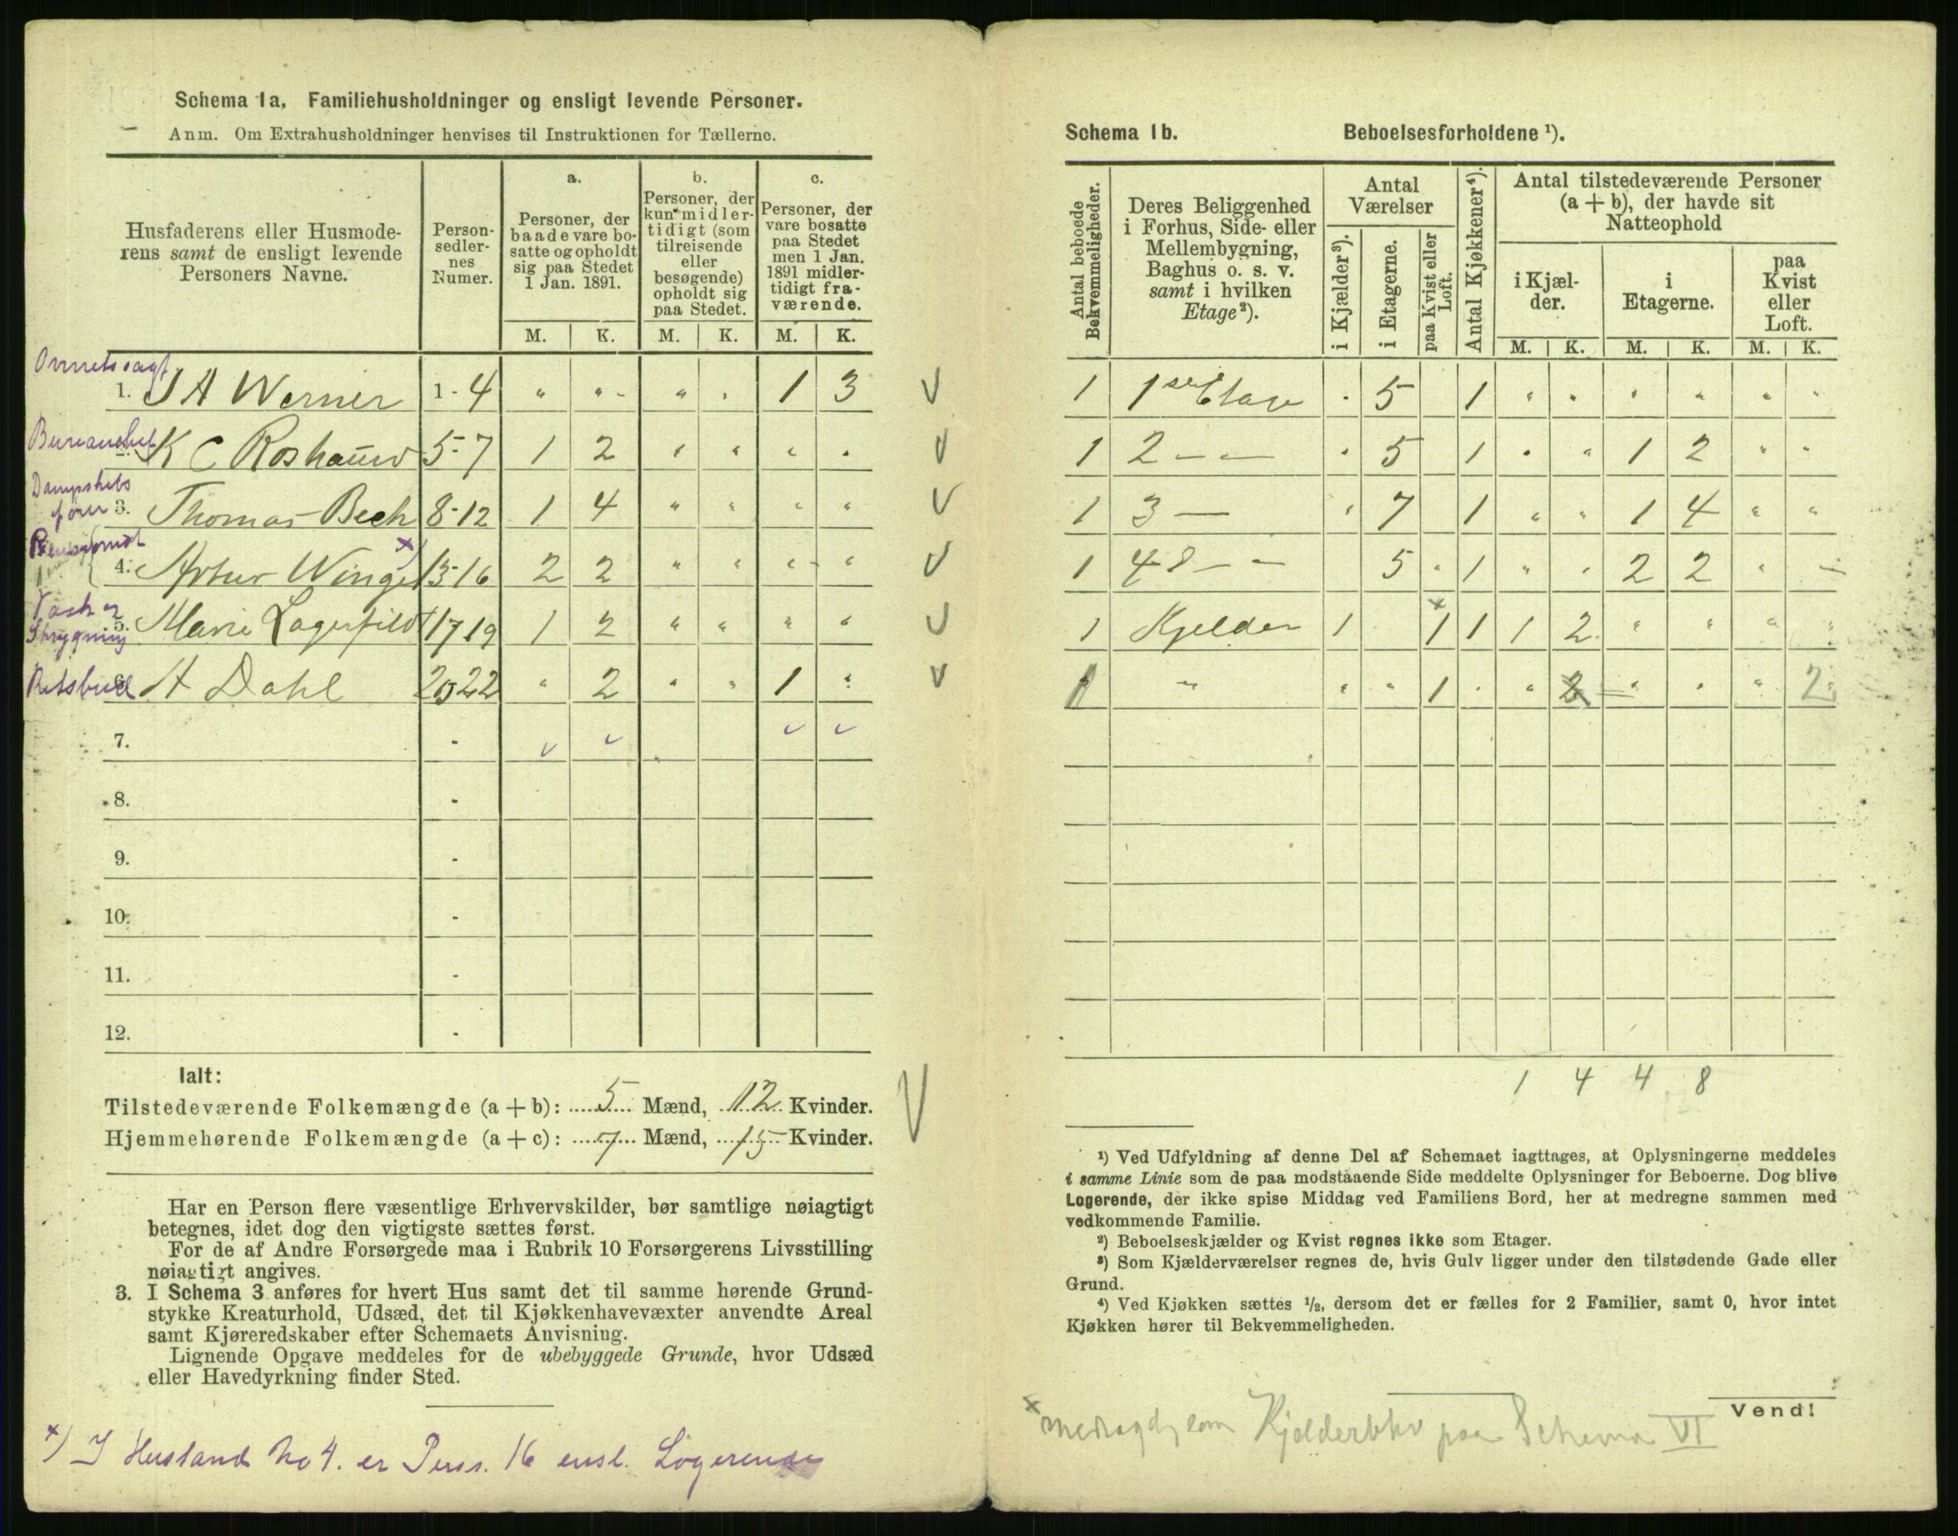 Schema 1a. Familiehusholdninger og ensligt levende Personer.
Anm. Om Extrahusholdninger henvises til Instruktionen for Tællerne.
Husfaderens eller Husmode-
rens samt de ensligt levende
Personers Navne.
Person-
sedler-
nes
Numer.
a.
Personer, der
baade vare bo-
satte og opholdt
sig paa Stedet
1 Jan. 1891.
b.
Personer, der
kun midler-
tidigt (som
tilreisende
eller
besøgende)
opholdt sig
paa Stedet.
c.
Personer, der
vare bosatte
paa Stedet
men 1 Jan.
1891 midler-
tidigt fra-
værende.
M. K. M. K. M. K.
1. J A Werner 1-4 " " " . 1 3 V
K C Roshauw 5-7 1 2 " " " . V
Dampskibs
fører
3. Thomas Bech 8-12 1 4 " " " " V
4. Artur Winge x 13-16 2 2 " " " " V
Vask og
Strygning
5. Marie Lagerfeldt 17 19 1 2 " " " " V
6. A Dahl 20 22 " 2 " " 1 " V
7. -
8. -
9. -
10. -
11. -
12. -
Ialt:
Tilstedeværende Folkemængde (a + b): 5 Mænd, 12 Kvinder.
Hjemmehørende Folkemængde (a + c): 7 Mænd, 15 Kvinder.
Har en Person flere væsentlige Erhvervskilder, bør samtlige nøiagtigt
betegnes, idet dog den vigtigste sættes først.
For de af Andre Forsørgede maa i Rubrik 10 Forsørgerens Livsstilling
nøiagtigt angives.
3. I Schema 3 anføres for hvert Hus samt det til samme hørende Grund-
stykke Kreaturhold, Udsæd, det til Kjøkkenhavevæxter anvendte Areal
samt Kjøreredskaber efter Schemaets Anvisning.
Lignende Opgave meddeles for de ubebyggede Grunde, hvor Udsæd
eller Havedyrkning finder Sted.
x) I Husstand No 4. er Pers. 16 ensl. Logerende
Schema 1b. Beboelsesforholdene ¹).
Antal beboede
Bekvemmeligheder.
Deres Beliggenhed
i Forhus, Side- eller
Mellembygning,
Baghus o. s. v.
samt i hvilken
Etage²).
Antal
Værelser
i Kjælder³).
i Etagerne.
paa Kvist eller
Loft.
Antal Kjøkkener⁴).
Antal tilstedeværende Personer
(a + b), der havde sit
Natteophold
i Kjæl-
der.
i
Etagerne.
paa
Kvist
eller
Loft.
M. K. M. K. M. K.
1 1ste Etage . 5 1 " " " " " "
1 2 — — " 5 1 . " 1 2 " "
1 3 — " 7 1 " " 1 4 " "
1 4 — — 5 " 1 " . 2 2 " —
1 Kjelder 1 x 1 1 1 2 " " " "
1 " " " 1 . " 2 " . " 2
1 4 4 8
¹) Ved Udfyldning af denne Del af Schemaet iagttages, at Oplysningerne meddeles
i samme Linie som de paa modstaaende Side meddelte Oplysninger for Beboerne. Dog blive
Logerende, der ikke spise Middag ved Familiens Bord, her at medregne sammen med
vedkommende Familie.
²) Beboelseskjælder og Kvist regnes ikke som Etager.
³) Som Kjælderværelser regnes de, hvis Gulv ligger under den tilstødende Gade eller
Grund.
⁴) Ved Kjøkken sættes ½, dersom det er fælles for 2 Familier, samt 0, hvor intet
Kjøkken hører til Bekvemmeligheden.
Vend!
x som Kjelder paa Schema VI